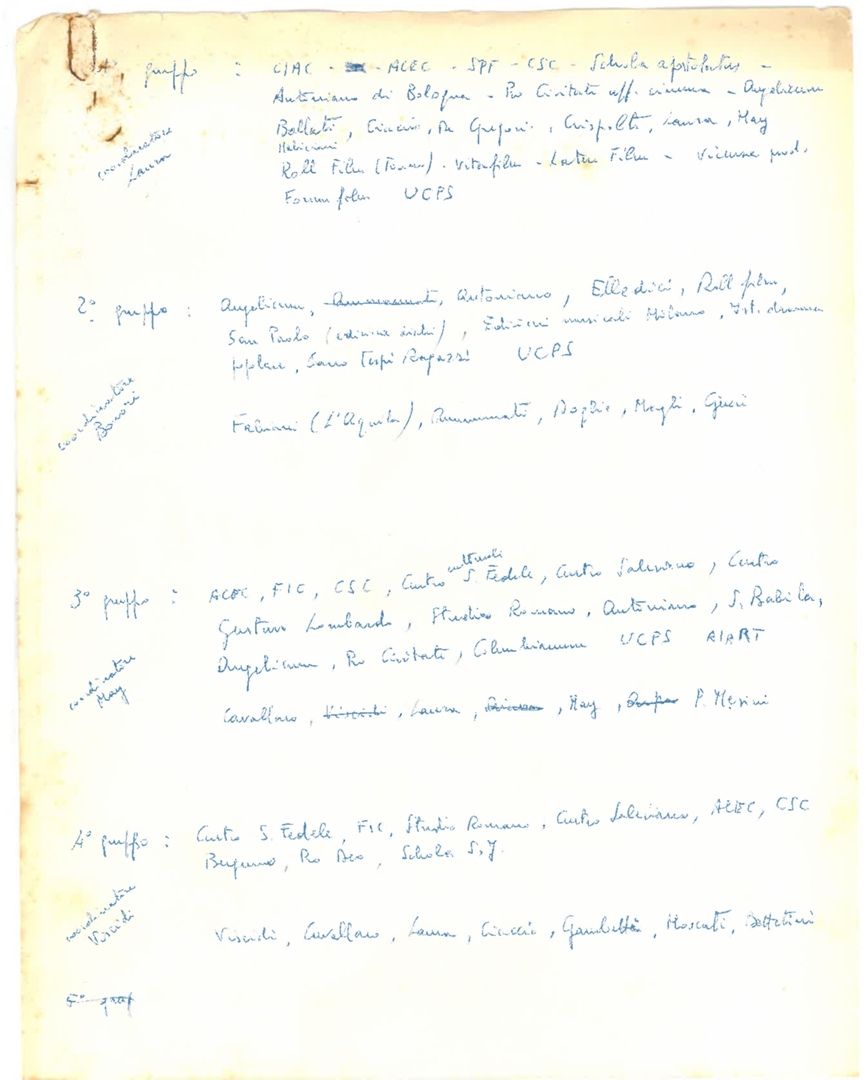 1° gruppo : CIAC - ACEC - SPF - CSC - Schola apostolatus -
Antoniano di Bologna - Pro Civitate uff. cinema - Angelicum
Ballati, Ciaccio, De Gregori, Crispolti, Laura, May
coordinatore
Laura
Roll Film (Torino) - Vitafilm - Latin Film - Vicenza prod.
Forum film UCPS
2° gruppo : Angelicum, Antoniano, Elledici, Roll film,
San Paolo (edizione dischi), Edizioni musicali Milano, Ist. dramma
popolare, Carro Tespi Ragazzi UCPS
coordinatore
Fabiani (L'Aquila), Annunziata, Doglio, Gucci
3° gruppo : ACEC, FIC, CSC, Centro culturali S. Fedele, Centro Salesiano, Centro
Gustavo Lombardo, Studio Romano, Antoniano, S. Babila,
Angelicum, Pro Civitate, Columbianum UCPS AIART
coordinatore
May
Cavallaro, Viscidi, Laura, May, P. Mesini
4° gruppo : Centro S. Fedele, FIC, Studio Romano, Centro Salesiano, ACEC, CSC
Bergamo, Pro Deo, Schola S.J.
coordinatore
Viscidi
Viscidi, Cavallaro, Laura, Ciaccio, Gambetti, Moscati, Bettetini
5° grup